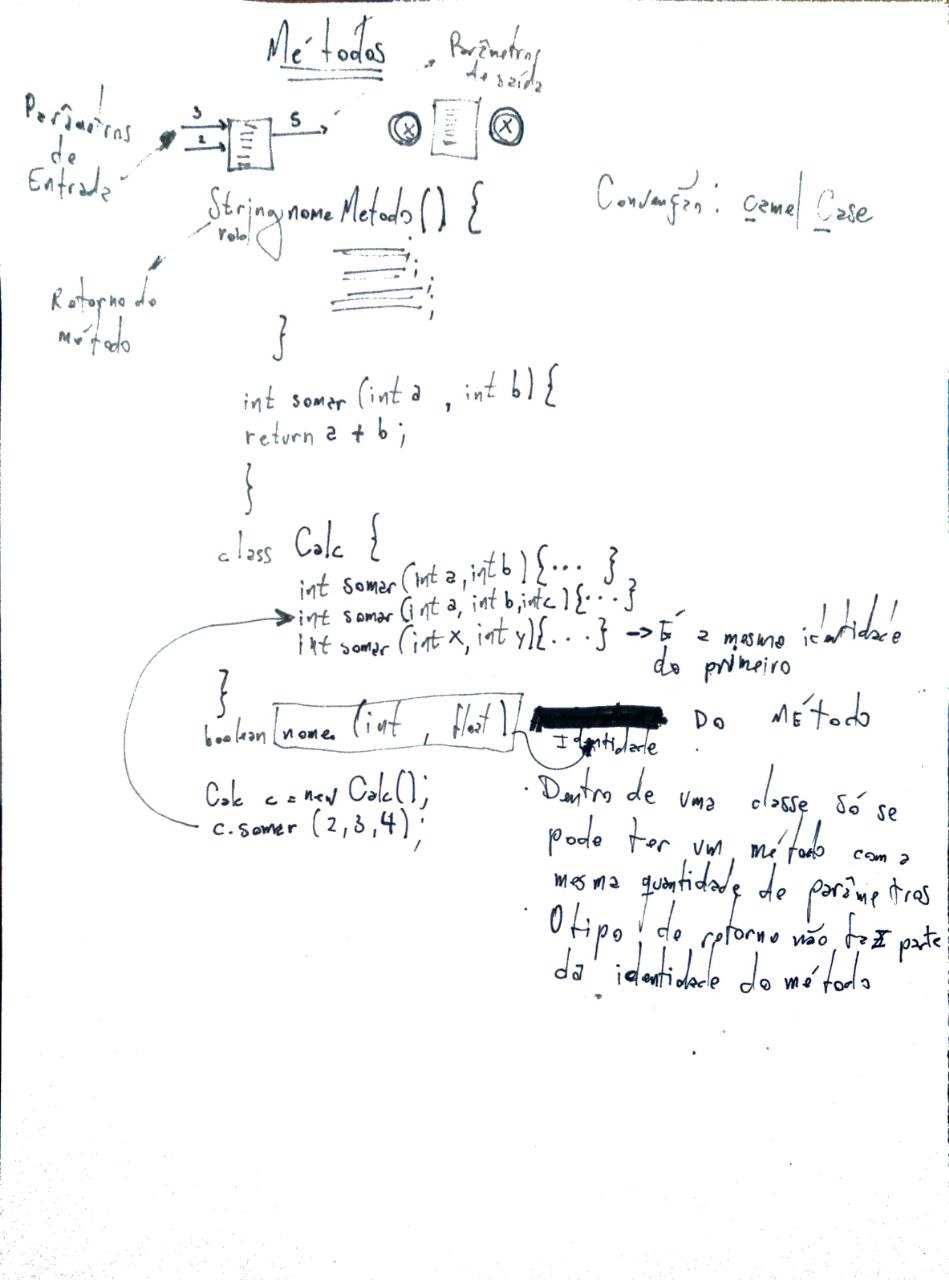 Métodos
Parâmetros
de saída
Parâmetros
de
Entrada
3
2
5
X
X
String nomeMetodo() {
;
;
;
;
}
Convenção: camel Case
Retorno do
método
int somar (int a , int b) {
return a + b ;
}
class Calc {
int somar (int a, int b) {... }
int somar (int a, int b, int c) {...}
int somar (int x, int y) {...} -> É a mesma identidade
do primeiro
}
boolean nome (int , float)
Identidade
DO MÉTODO
Calc c = new Calc();
c.somar (2,3,4) ;
· Dentro de uma classe só se
pode ter um método com a
mesma quantidade de parâmetros
· O tipo de retorno não faz parte
da identidade do método